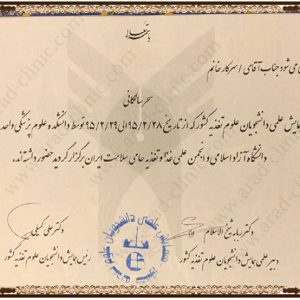 باسمه تعالی
می شود جناب آقای / سرکار خانم
سحر سالکانی
همایش علمی دانشجویان علوم تغذیه کشور که از تاریخ ۹۵/۲/۲۸ الی ۹۵/۲/۲۹ توسط دانشکده علوم پزشکی واحد
دانشگاه آزاد اسلامی و انجمن علمی غذا و تغذیه حامی سلامت ایران برگزار گردید حضور داشته‌اند.
دکتر ربابه شیخ الاسلام
دکتر علی کسبی
دبیر علمی همایش دانشجویان علوم تغذیه کشور
رییس همایش دانشجویان علوم تغذیه کشور
arad-clinic.com